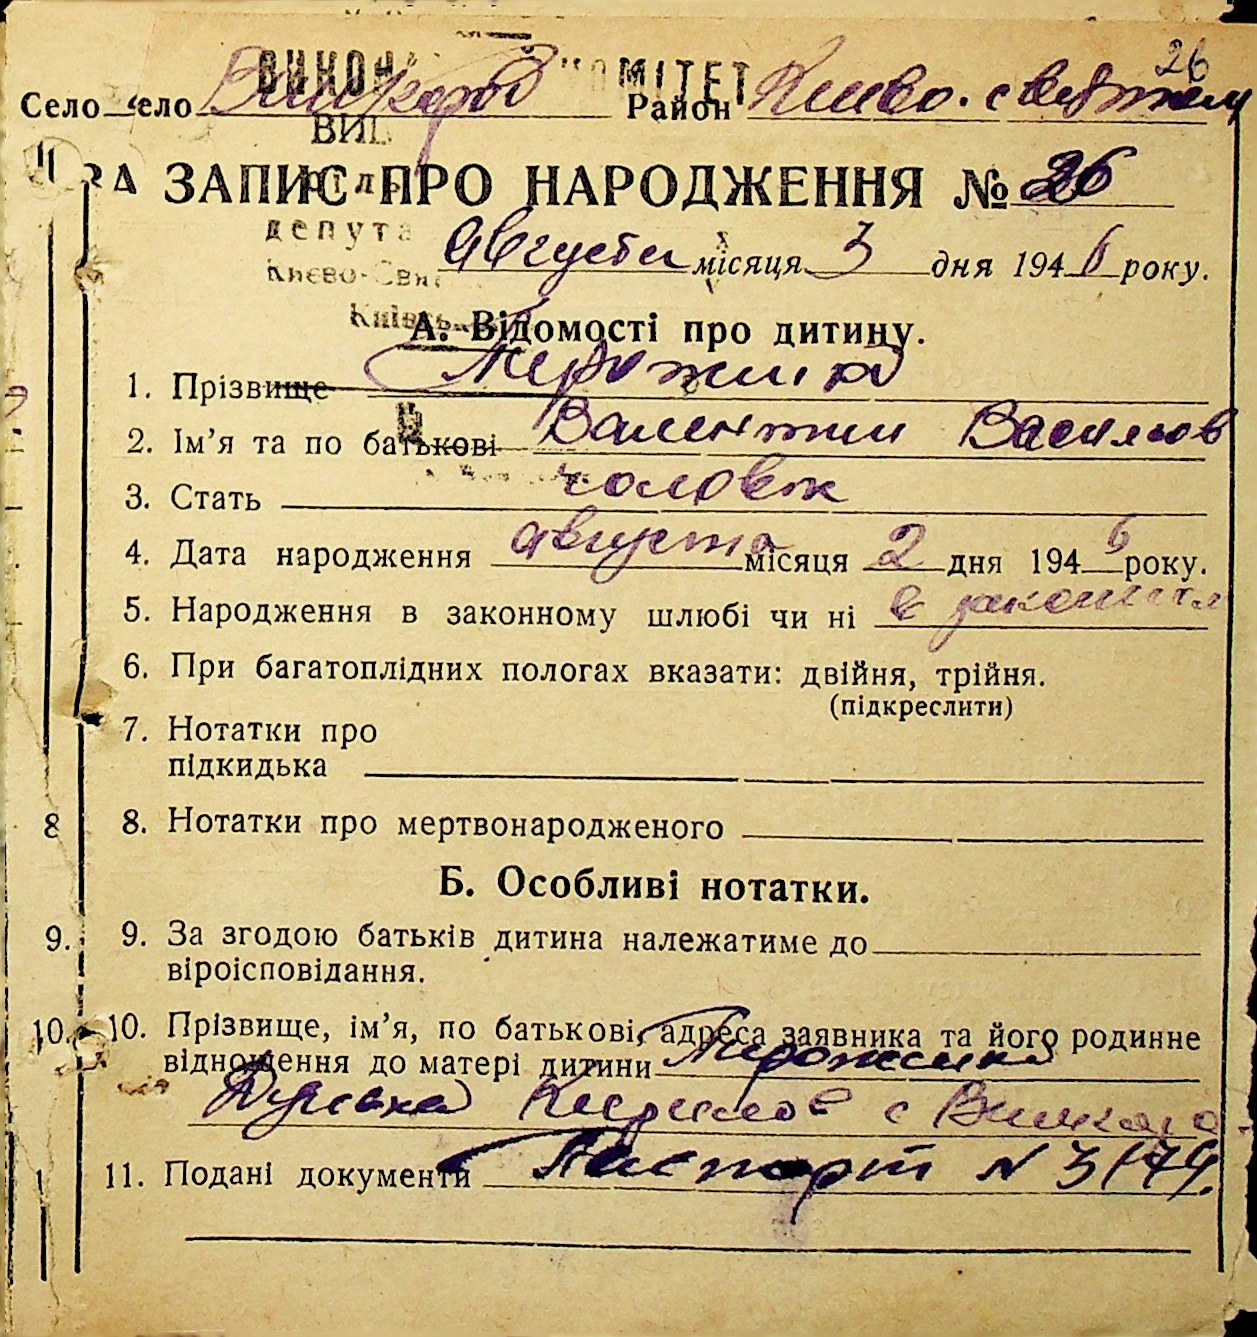 26
ВИКОН КОМІТЕТ
Село село Вишгород Район Києво-Святош
ВИШ
ЗАПИС ПРО НАРОДЖЕННЯ № 26
депута
Августа місяця 3 дня 1946 року.
Києво-Свя
Київськ
А. Відомості про дитину.
1. Прізвище
2. Ім’я та по батькові Валентин Васильов
3. Стать чоловік
4. Дата народження августа місяця 2 дня 1946 року.
5. Народження в законному шлюбі чи ні в законнім
6. При багатоплідних пологах вказати: двійня, трійня.
(підкреслити)
7. Нотатки про
підкидька
8 8. Нотатки про мертвонародженого
Б. Особливі нотатки.
9. 9. За згодою батьків дитина належатиме до
віроісповідання.
10. 10. Прізвище, ім’я, по батькові, адреса заявника та його родинне
відношення до матері дитини
с Вишгоро
11. Подані документи Паспорт N